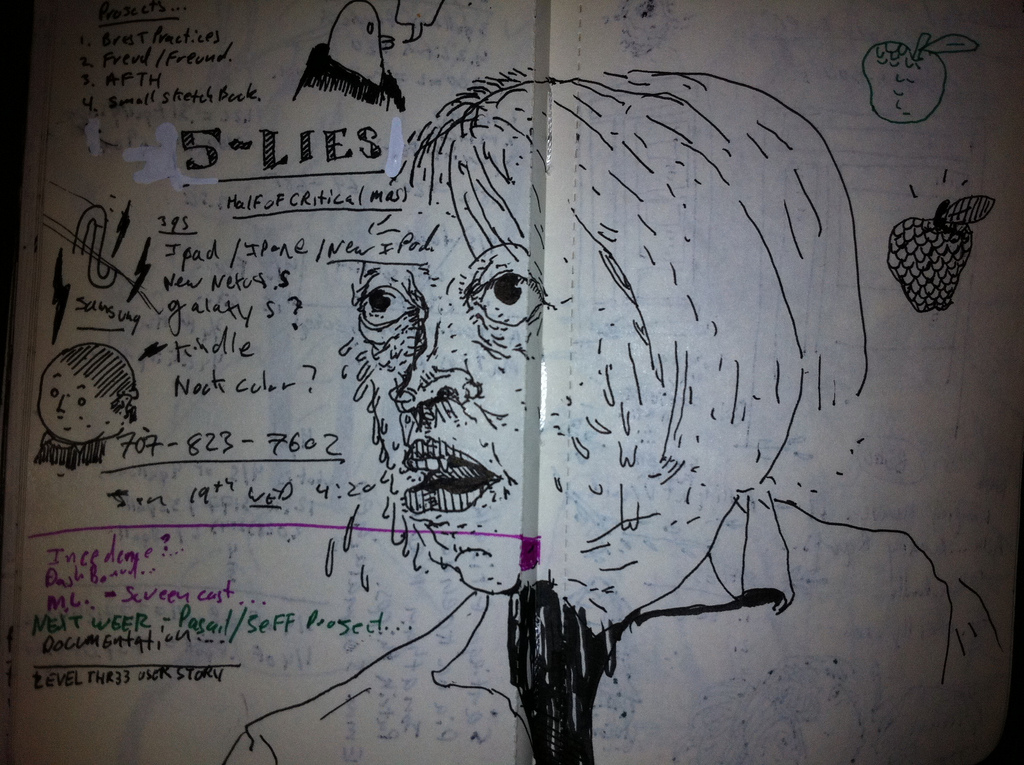 Projects...
1. Brest Practices
2. Freud/Freund.
3. AFTH
4. Small sketch Book.
5-LIES
Half of Critical Mass
3gs
Ipad / Ipone / New IPad
New
galaxy s?
Samsung
Kindle
Nook color?
707-823-7602
19th WED 4:20
Dash Board...
M.L. - Screen cast...
NEXT WEEK - / Jeff Project...
Documentation...
LEVEL THR33 USER STORY